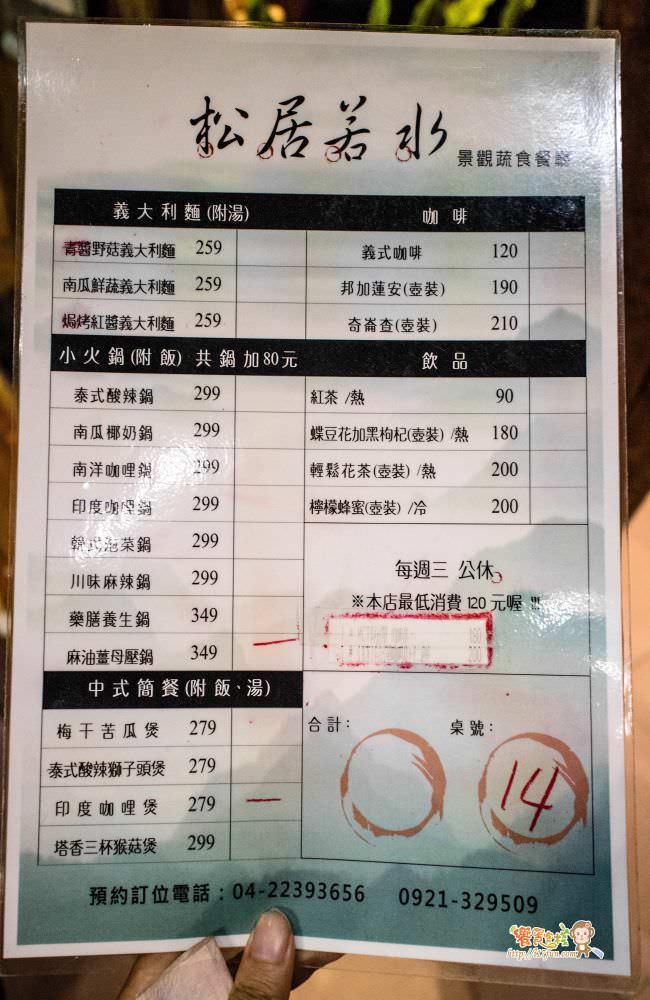 松居若水
景觀蔬食餐廳
義大利麵(附湯)
青醬野菇義大利麵 259
南瓜鮮蔬義大利麵 259
焗烤紅醬義大利麵 259
小火鍋(附飯) 共鍋加80元
泰式酸辣鍋 299
南瓜椰奶鍋 299
南洋咖哩鍋 299
印度咖哩鍋 299
韓式泡菜鍋 299
川味麻辣鍋 299
藥膳養生鍋 349
麻油薑母壓鍋 349
中式簡餐(附飯、湯)
梅干苦瓜煲 279
泰式酸辣獅子頭煲 279
印度咖哩煲 279
塔香三杯猴菇煲 299
咖啡
義式咖啡 120
邦加蓮安(壺裝) 190
奇崙查(壺裝) 210
飲品
紅茶 /熱 90
蝶豆花加黑枸杞(壺裝) /熱 180
輕鬆花茶(壺裝) /熱 200
檸檬蜂蜜(壺裝) /冷 200
每週三 公休
※本店最低消費 120 元喔 !!!
合計:
桌號:
14
預約訂位電話:04-22393656 0921-329509